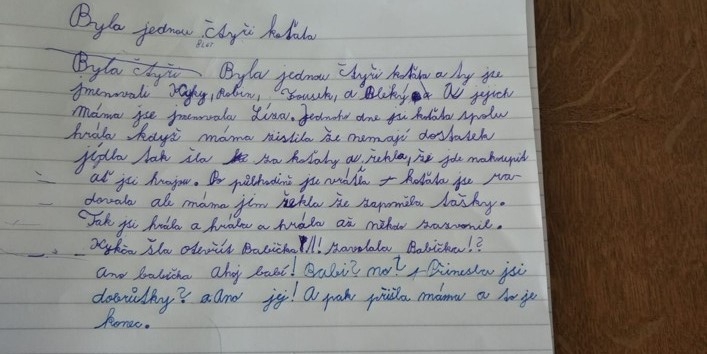 Byla jednou čtyři koťata
Byla čtyři Byla jednou čtyři koťata a ty jse
jmenovali Kyky, Robin, Fousek, a Bleký a jejich
máma jse jmenovala Líza. Jednoho dne jsi koťata spolu
hrála když máma zistila že nemají dostatek
jídla tak šla za koťaty a řekla, že jde nakoupit
ať jsi hrajou. Po půlhodině jse vrátila koťata jse ra-
dovala ale máma jim řekla že zapoměla tašky.
Tak jsi hrála a hrála a hrála až někdo zazvonil.
šla otevřít Babička!!! zavolala Babička!?
Ano babička Ahoj babi! Babi? no? Přinesla jsi
dobrůtky? Ano jej! A pak přišla máma a to je
konec.